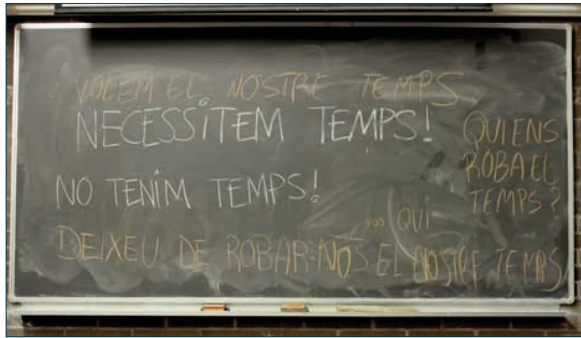 VOLEM EL NOSTRE TEMPS
NECESSITEM TEMPS!
QUI ENS
ROBA EL
TEMPS?
NO TENIM TEMPS!
vos QUI
DEIXEU DE ROBAR-NOS EL NOSTRE TEMPS